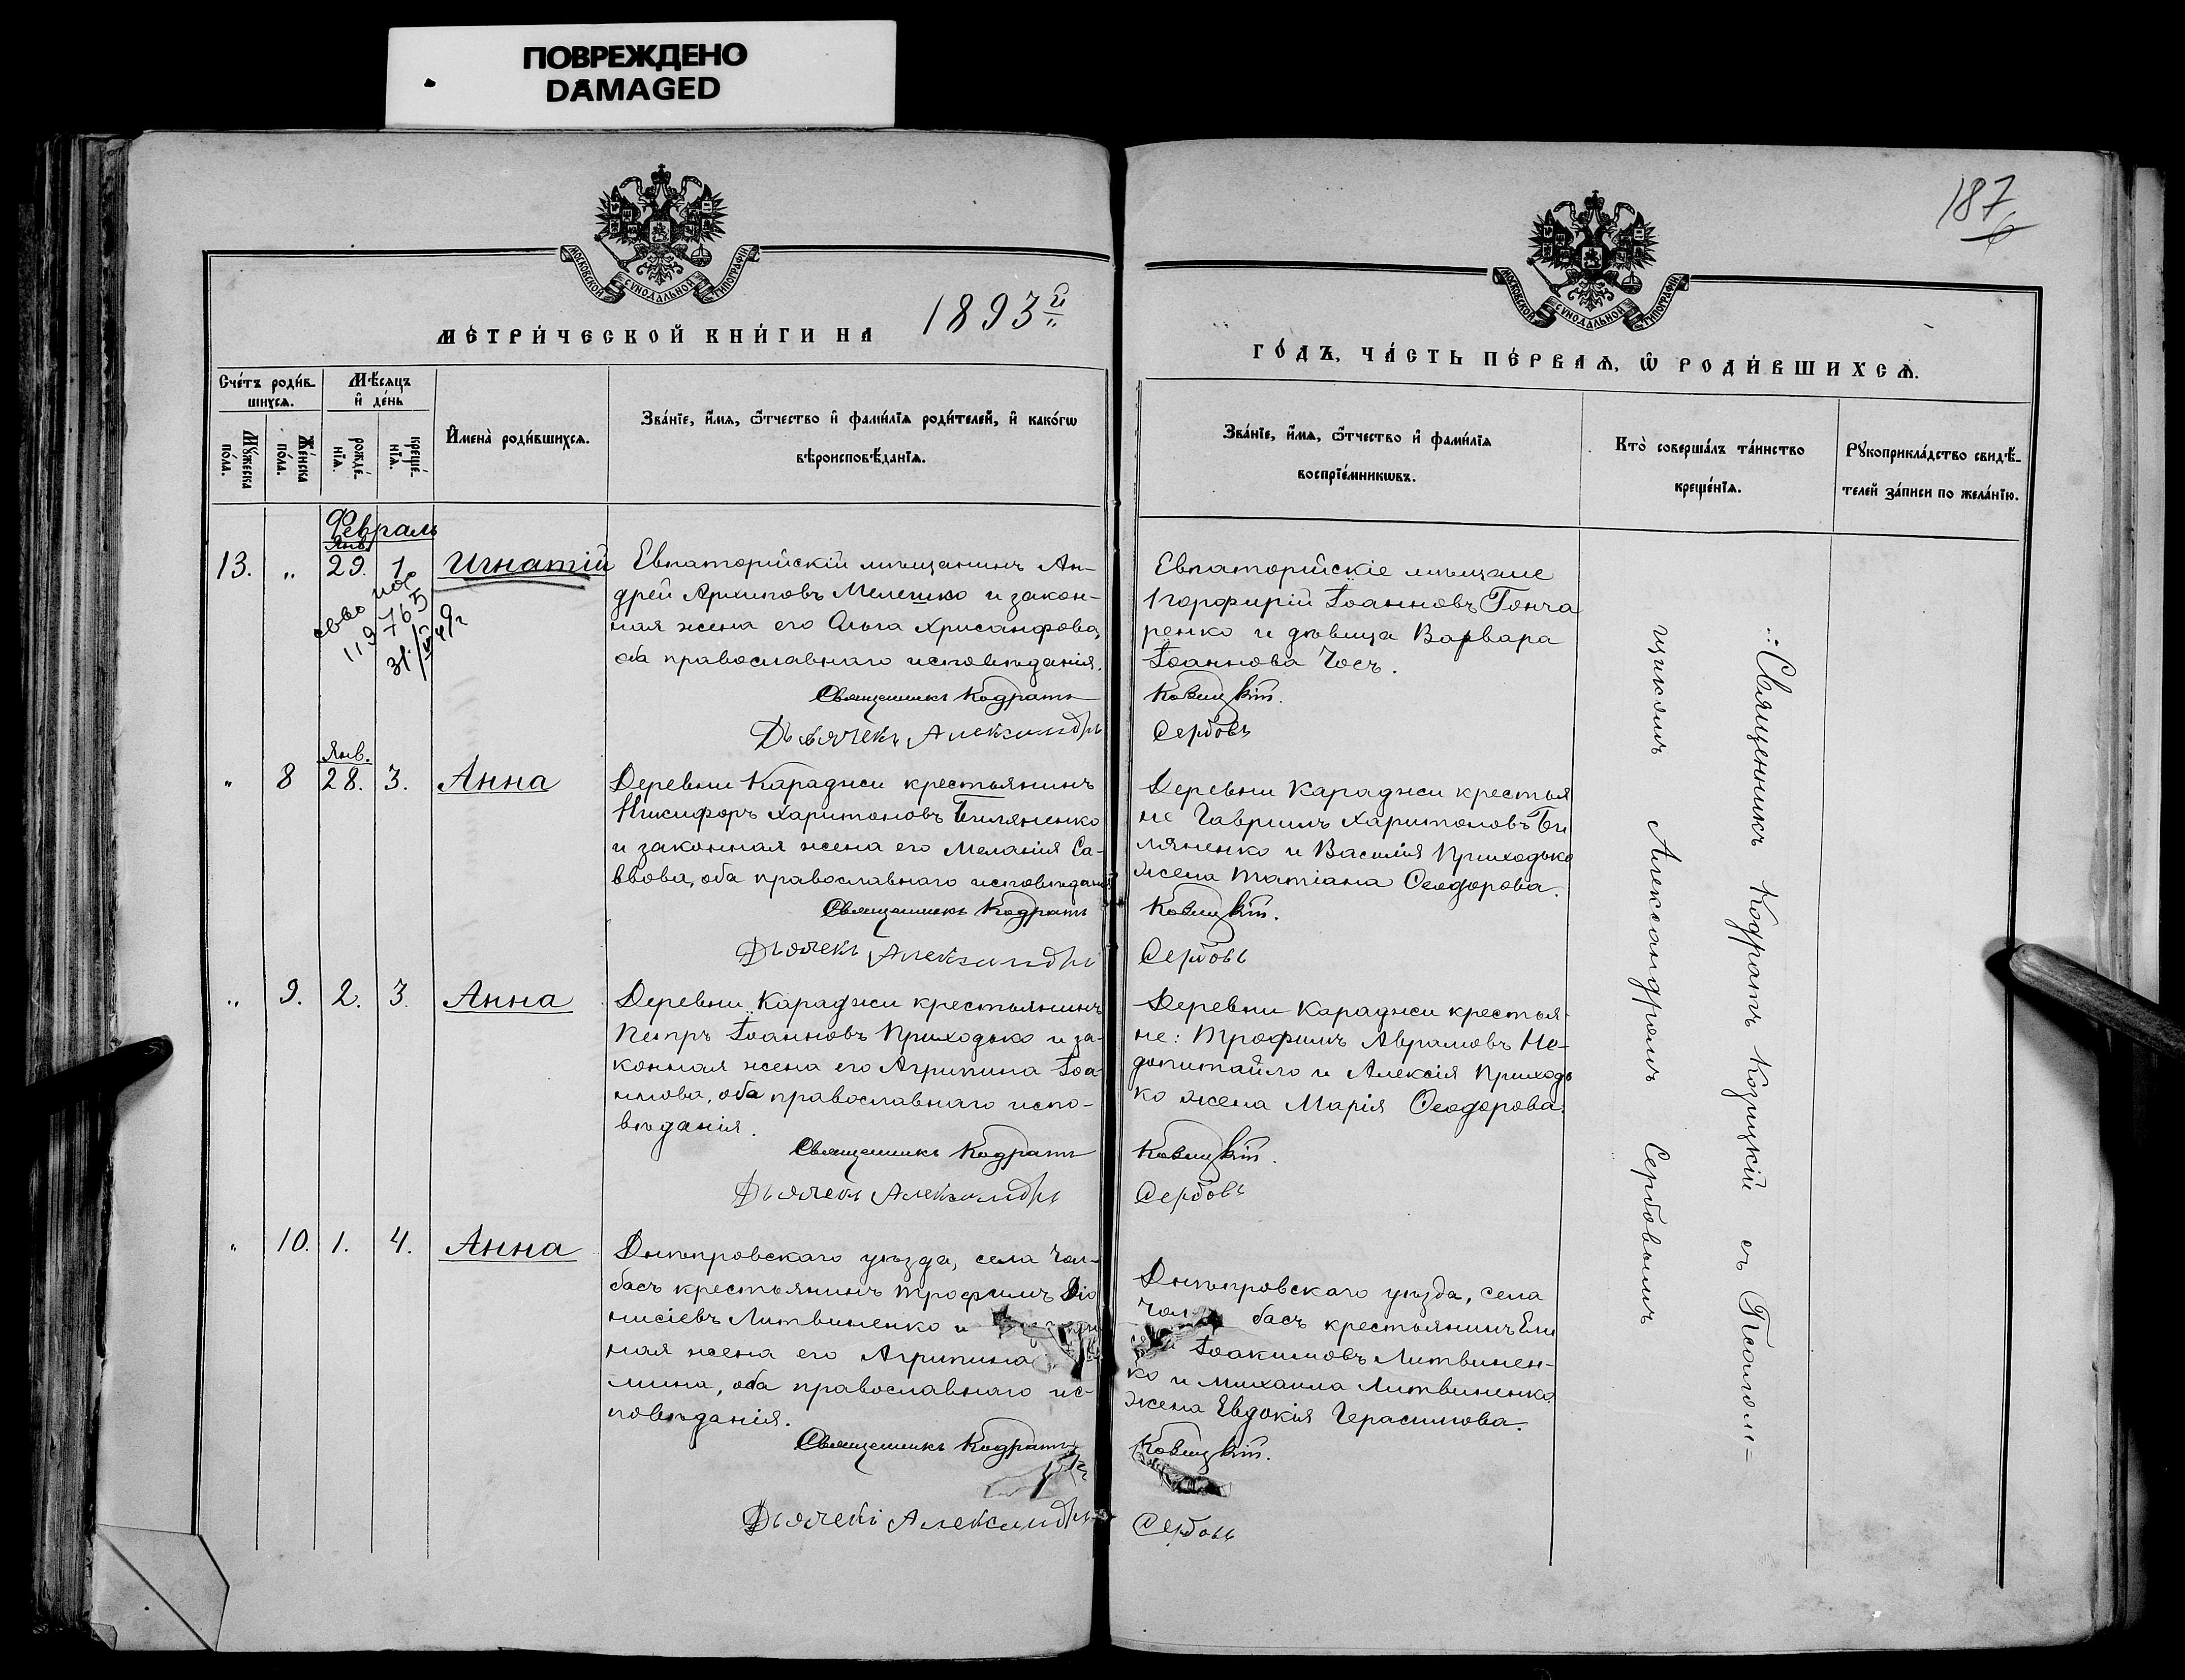 ПОВРЕЖДЕНО
DAMAGED
187
6
МОСКОВСКОЙ СѴНОДАЛЬНОЙ ТИПОГРАФІИ
МОСКОВСКОЙ СѴНОДАЛЬНОЙ ТИПОГРАФІИ
МЕТРИ́ЧЕСКОЙ КНИ́ГИ НА 1893й
ГО́ДЪ, ЧА́СТЬ ПЕ́РВАѦ, Ѿ РОДИ́ВШИХСѦ.
Сче́тъ роди́в-
шихсѧ.
Мѣ́сѧцъ
и҆ де́нь
Мꙋ́жеска
по́ла.
Же́нска
по́ла.
рожде́-
нїѧ.
креще́-
нїѧ.
И҆мена̀ роди́вшихсѧ.
Зва́нїе, и҆́мѧ, ѻ҆́тчество и҆ фами́лїѧ роди́телей, и҆ како́гѡ
вѣроисповѣ́данїѧ.
Зва́нїе, и҆́мѧ, ѻ҆́тчество и҆ фами́лїѧ
воспрїе́мникѡвъ.
Кто̀ соверша́лъ та́инство
креще́нїѧ.
Рꙋкоприкла́дство свидѣ́-
телей за́писи по жела́нїю.
Февраль
Янв.
13. „ 29. 1. Игнатій
Евпаторійскій мѣщанинъ Ан-
дрей Архиповъ Мелешко и закон-
ная жена его Ольга Хрисанфова,
оба православнаго исповѣданія.
Священникъ Кодратъ
Дьячекъ Александръ
Евпаторійскіе мѣщане
Порфирій Іоанновъ Гонча
ренко и дѣвица Варвара
Іоаннова Чосъ.
Козицкій.
Сербовъ
Янв.
„ 8 28. 3. Анна
Деревни Караджи крестьянинъ
Никифоръ Харитоновъ Биляненко
и законная жена его Меланія Са-
ввова, оба православнаго исповѣданія
Священникъ Кодратъ
Дьячекъ Александръ
Деревни Караджи крестья
не Гавріилъ Харитоновъ Би
ляненко и Василія Приходько
жена Татіана Ѳеодорова.
Козицкій.
Сербовъ
„ 9. 2. 3. Анна
Деревни Караджи крестьянинъ
Петръ Іоанновъ Приходько и за-
конная жена его Агрипина Іоа
ннова, оба православнаго испо-
вѣданія.
Священникъ Кодратъ
Дьячекъ Александръ
Деревни Караджи крестья-
не: Трофимъ Аврамовъ Не-
допитайло и Алексія Приходь
ко жена Марія Ѳеодорова.
Козицкій.
Сербовъ
„ 10. 1. 4. Анна
Днѣпровскаго уѣзда, села Чол-
басъ крестьянинъ Трофимъ Діо
нисіевъ Литвиненко и
ная жена его Агрипина
мина, оба православнаго ис-
повѣданія.
Священникъ Кодратъ
Дьячекъ Александръ
Днѣпровскаго уѣзда, села
Чол басъ крестьянинъ Ели
Іоакимовъ Литвинен-
ко и Михаила Литвиненко
жена Евдокія Герасимова.
Козицкій.
Сербовъ
Священникъ Кодратъ Козицкій съ Псаломъ=
щикомъ Александромъ Сербовымъ